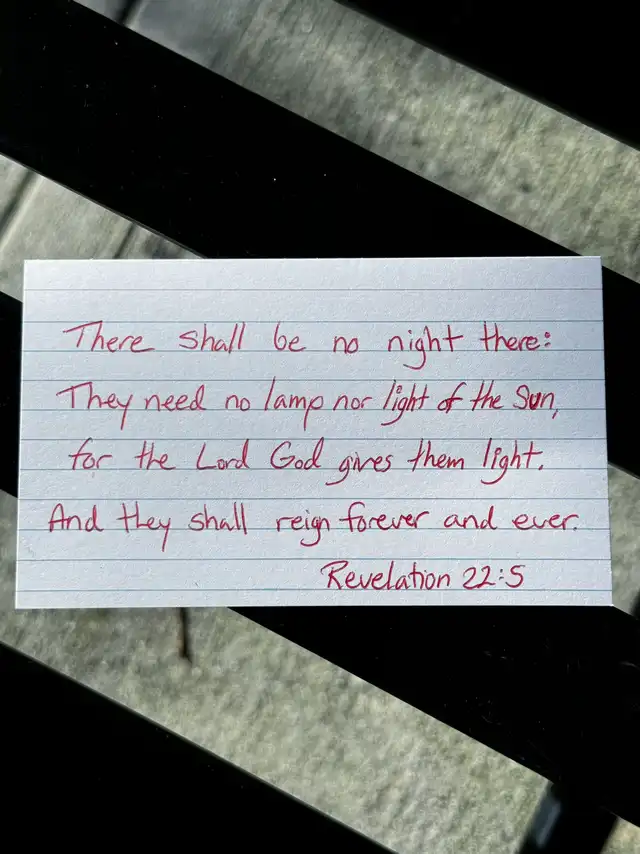 There shall be no night there:
They need no lamp nor light of the Sun,
for the Lord God gives them light.
And they shall reign forever and ever.
Revelation 22:5